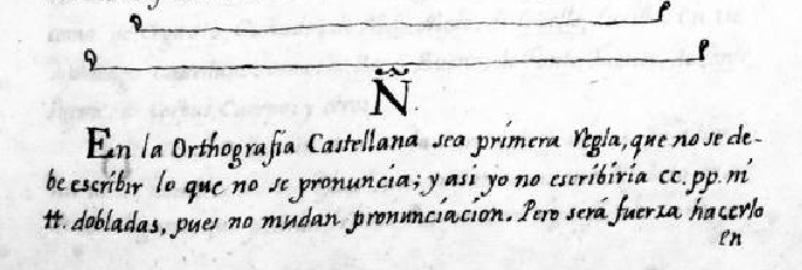 Ñ.
En la Orthografia Castellana sea primera regla, que no se de-
be escribir lo que no se pronuncia; y asi yo no escribiria cc. pp. ni
tt. dobladas, pues no mudan pronunciacion. Pero será fuerza hacerlo
en